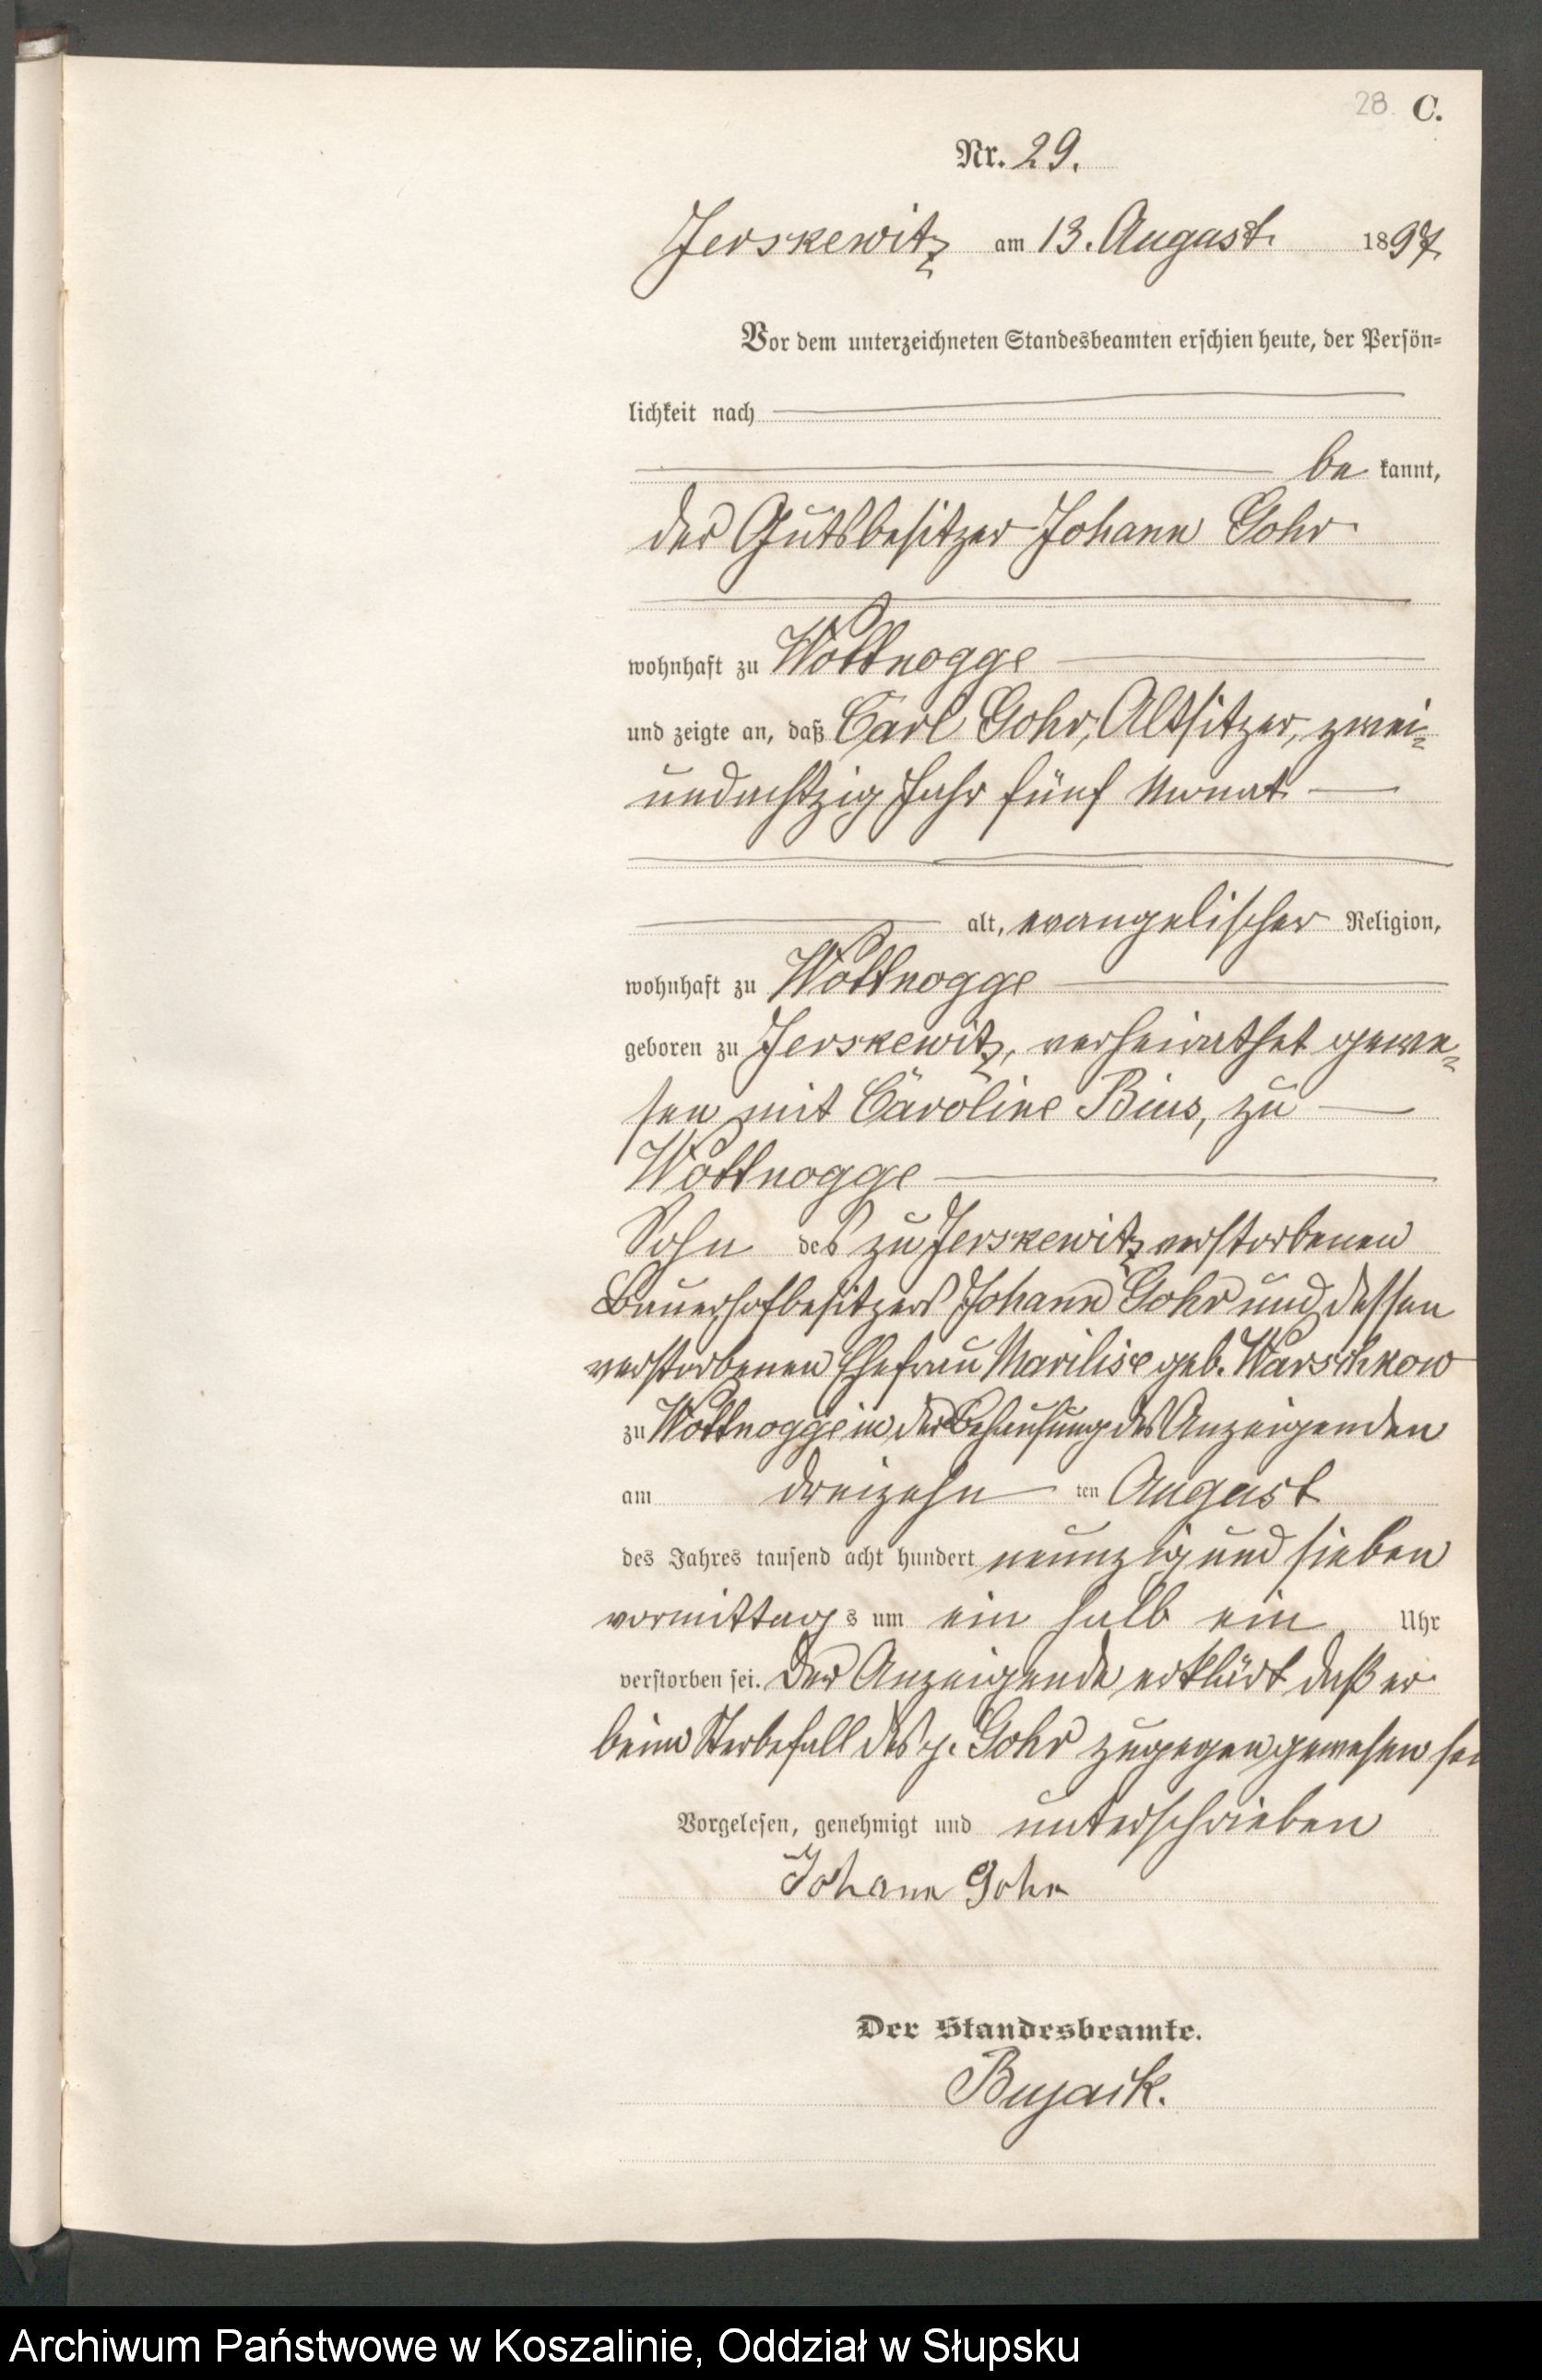 28 C.
Nr. 29.
Jerskewitz am 13. August 1897.
Vor dem unterzeichneten Standesbeamten erschien heute, der Persön=
lichkeit nach
be kannt,
der Gutsbesitzer Johann Gohr
wohnhaft zu Wottnogge
und zeigte an, daß Carl Gohr, Altsitzer, zwei=
undachtzig Jahr fünf Monat
alt, evangelischer Religion,
wohnhaft zu Wottnogge
geboren zu Jerskewitz, verheirathet gewe=
sen mit Caroline Bius, zu
Wottnogge
Sohn des zu Jerskewitz verstorbenen
Bauerhofbesitzers Johann Gohr und dessen
verstorbenen Ehefrau Marilise geb. Warschkow
zu Wottnogge in der Behausung des Anzeigenden
am dreizehn ten August
des Jahres tausend acht hundert neunzig und sieben
vormittags um ein halb ein Uhr
verstorben sei. Der Anzeigende erklärt daß er
beim Sterbefall des p. Gohr zugegen gewesen sei
Vorgelesen, genehmigt und unterschrieben
Johann Gohr
Der Standesbeamte.
Archiwum Państwowe w Koszalinie, Oddział w Słupsku